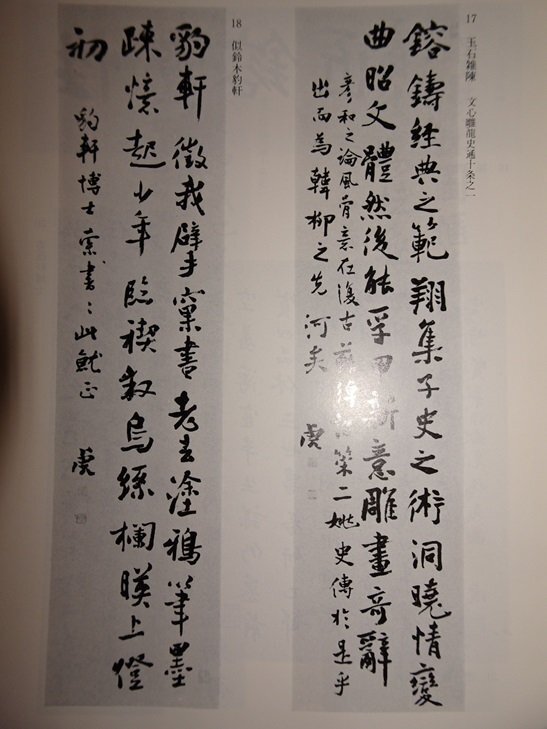 17 玉石雑陳 文心雕龍史通十条之一
鎔鑄經典之範翔集子史之術洞曉情變
曲昭文體然後能孚甲新意雕畫奇辭
彦和之論風骨意在復古 二姚史傳於是乎
出而為韓柳之先河矣 虎
18 似鈴木豹軒
豹軒徵我擘窠書老去塗鴉筆墨
疎憶起少年臨禊敘烏絲欄暎上燈
初
豹軒博士索書〻此就正 虎